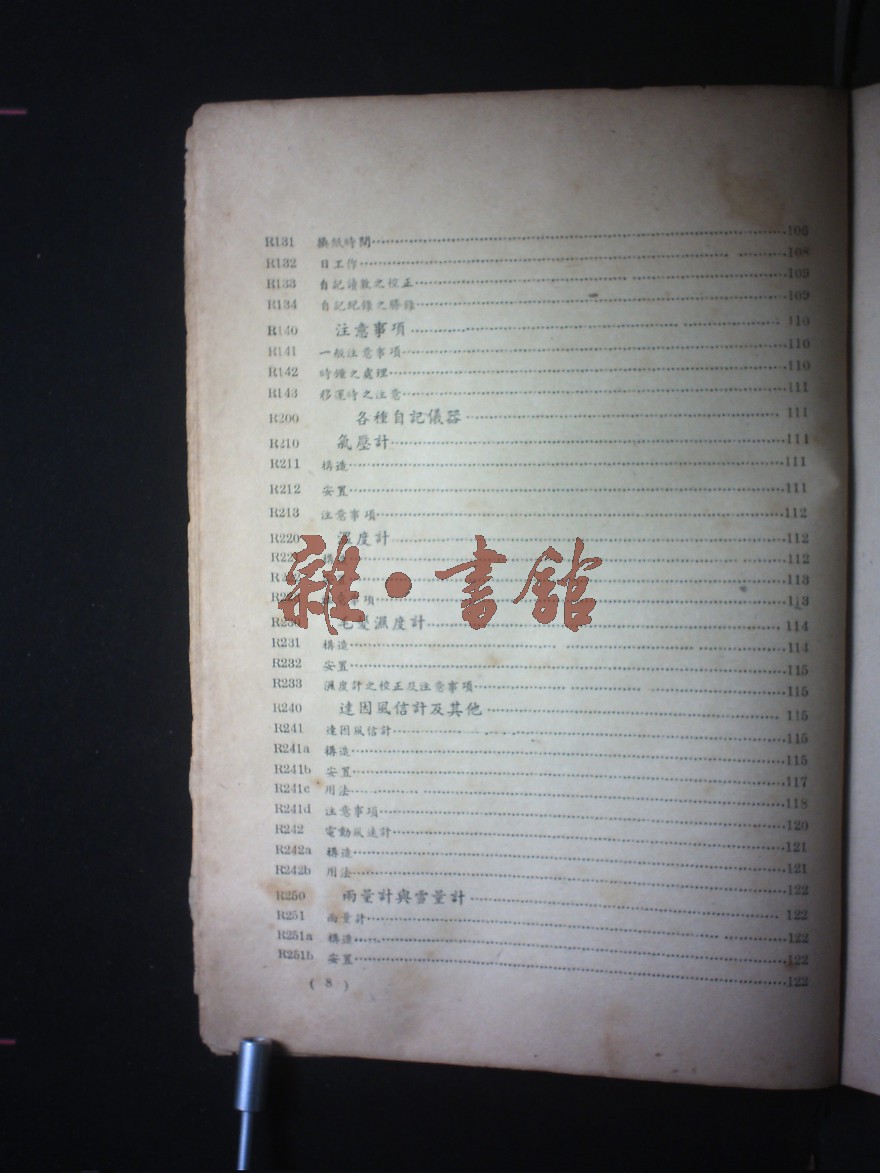 R131 換紙時間 106
R132 日工作 108
R133 自記讀數之校正 109
R134 自記紀錄之謄錄 109
R140 注意事項 110
R141 一般注意事項 110
R142 時鐘之處理 110
R143 移運時之注意 111
R200 各種自記儀器 111
R210 氣壓計 111
R211 構造 111
R212 安置 111
R213 注意事項 112
R220 度計 112
構 112
113
事項 113
雜·書館
毛髮濕度計 114
R231 構造 114
R232 安置 115
R233 濕度計之校正及注意事項 115
R240 達因風信計及其他 115
R241 達因風信計 115
R241a 構造 115
R241b 安置 117
R241c 用法 118
R241d 注意事項 120
R242 電動風速計 121
R242a 構造 121
R242b 用法 122
R250 雨量計與雪量計 122
R251 雨量計 122
R251a 構造 122
R251b 安置 122
( 8 )